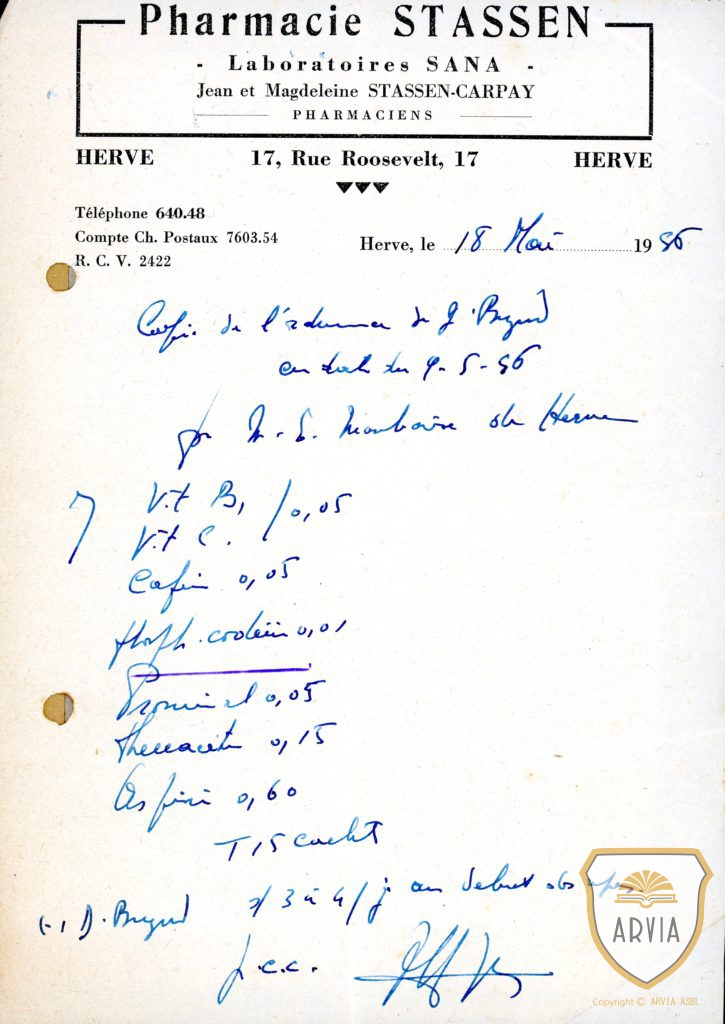 Pharmacie STASSEN
- Laboratoires SANA -
Jean et Magdeleine STASSEN-CARPAY
PHARMACIENS
HERVE 17, Rue Roosevelt, 17 HERVE
Téléphone 640.48
Compte Ch. Postaux 7603.54
R. C. V. 2422
Herve, le 18 Mai 1956
de l'ordonnance du
en date du 9-5-56
de Herve
Vit B1 / 0,05
Vit C.
Cafein 0,05
Phosph. codéin 0,01
Prominal 0,05
Phenacetin 0,15
Aspirin 0,60
T 15 cachets
s/ 3 à 4/j au debut des repas.
p.c.c.
ARVIA
Copyright © ARVIA ASBL